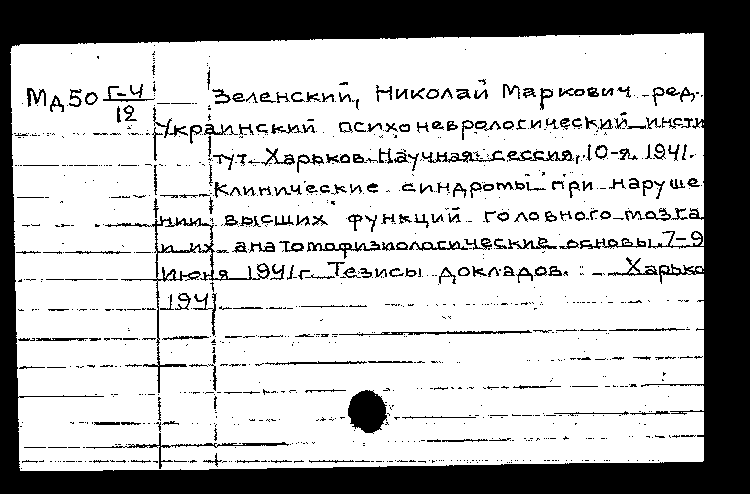 Мд50 Г-4/12 Зеленский, Николай Маркович ред.
Украинский психоневрологический инсти
тут. Харьков. Научная сессия, 10-я. 1941.
Клинические синдромы при наруше
нии высших функций головного мозга
и их анатомофизиологические основы. 7-9
июня 1941г. Тезисы докладов. - Харько
1941.